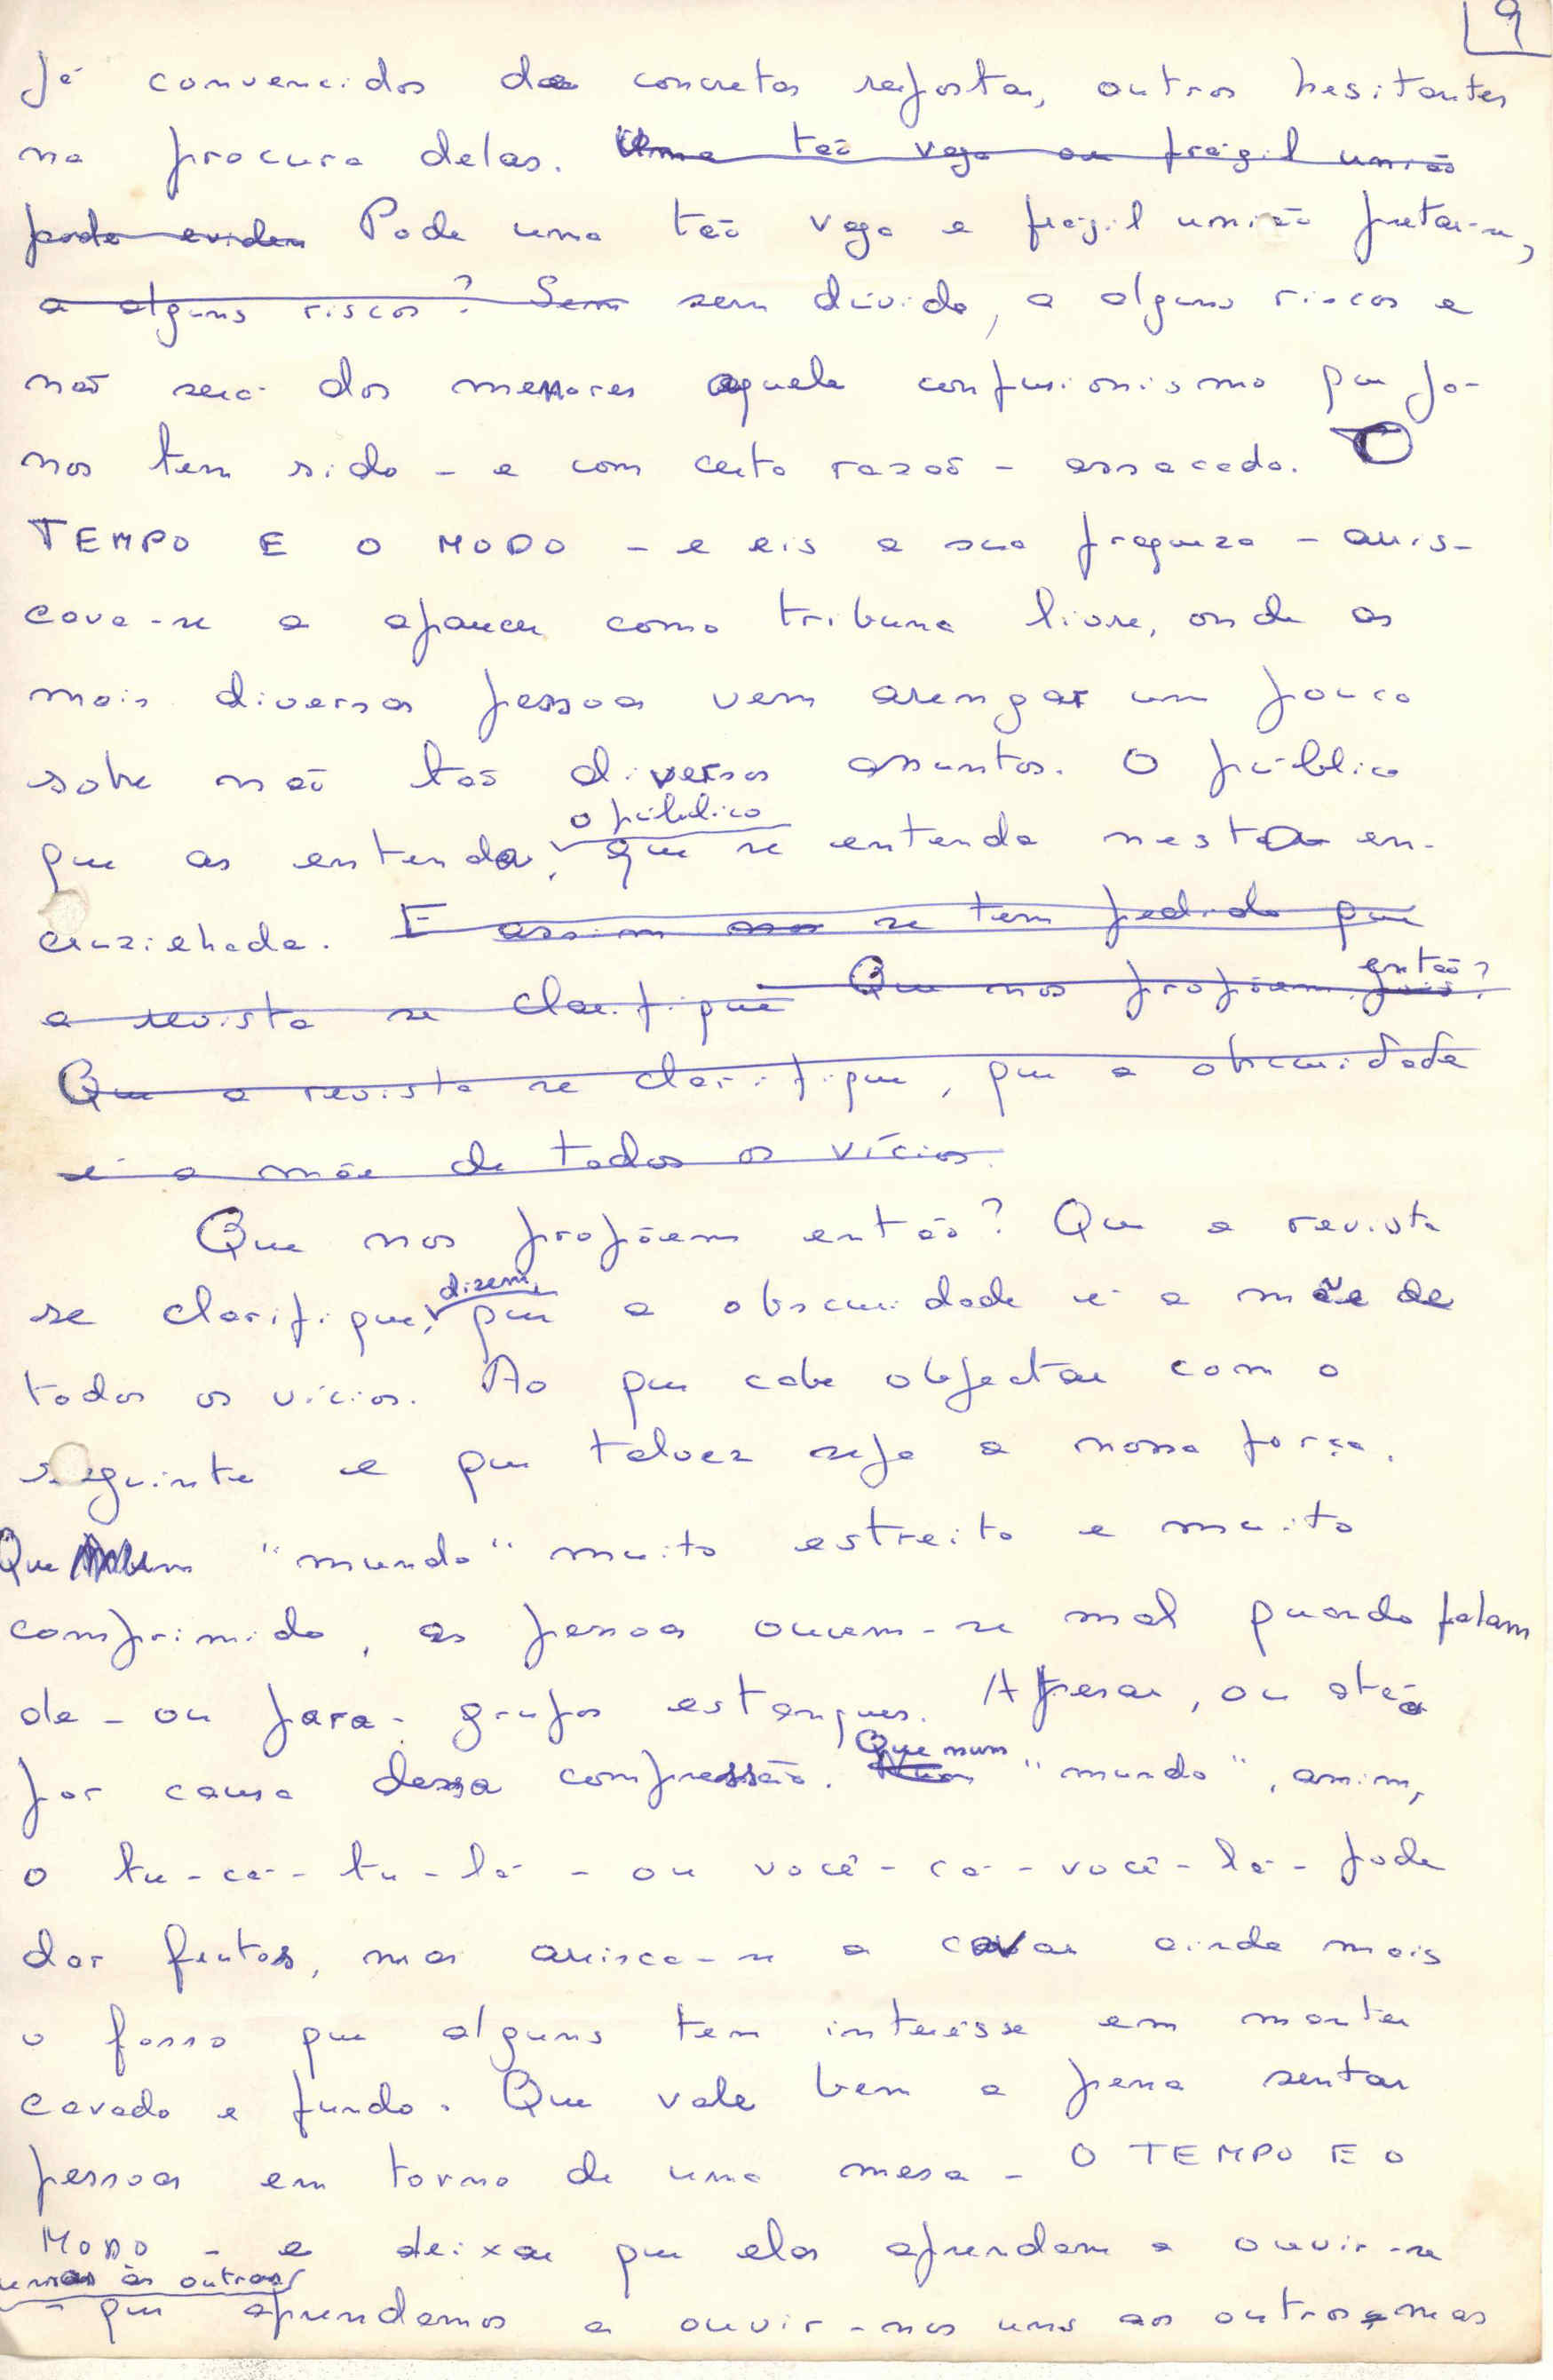 9
já convencidos de concretas respostas, outros hesitantes
na procura delas. Uma tão vaga ou frágil união
pode eviden Pode uma tão vaga e frágil união prestar-se,
a alguns riscos? Sem sem dúvida, a alguns riscos e
não será dos menores aquele confusionismo que já
nos tem sido - e com certa razão - assacado. O
TEMPO E O MODO - e eis a sua fraqueza - arris-
cava-se a aparecer como tribuna livre, onde as
mais diversas pessoas vem arengar um pouco
sobre não tão diversos assuntos. O público
que as entenda, o público que se entenda nesta en-
cruzilhada. E assim se tem pedido que
a revista se clarifique Que nos propõem pois? então?
Que a revista se clarifique, que a obscuridade
é a mãe de todos os vícios.
Que nos propõem então? Que a revista
se clarifique, dizem, que a obscuridade é a mãe de
todos os vícios. Ao que cabe objectar com o
seguinte e que talvez seja a nossa força.
Que num "mundo" muito estreito e muito
comprimido, as pessoas ouvem-se mal quando falam
de - ou para - grupos estanques. Apesar, ou até
por causa dessa compressão. Num Que num "mundo", assim,
o tu-cá-tu-lá - ou você-cá-você-lá - pode
dar frutos, mas arrisca-se a cavar ainda mais
o fosso que alguns tem interêsse em manter
cavado e fundo. Que vale bem a pena sentar
pessoas em torno de uma mesa - O TEMPO E O
MODO - e deixar que elas aprendam a ouvir-se
umas às outras
- que aprendamos a ouvir-nos uns aos outros, mas